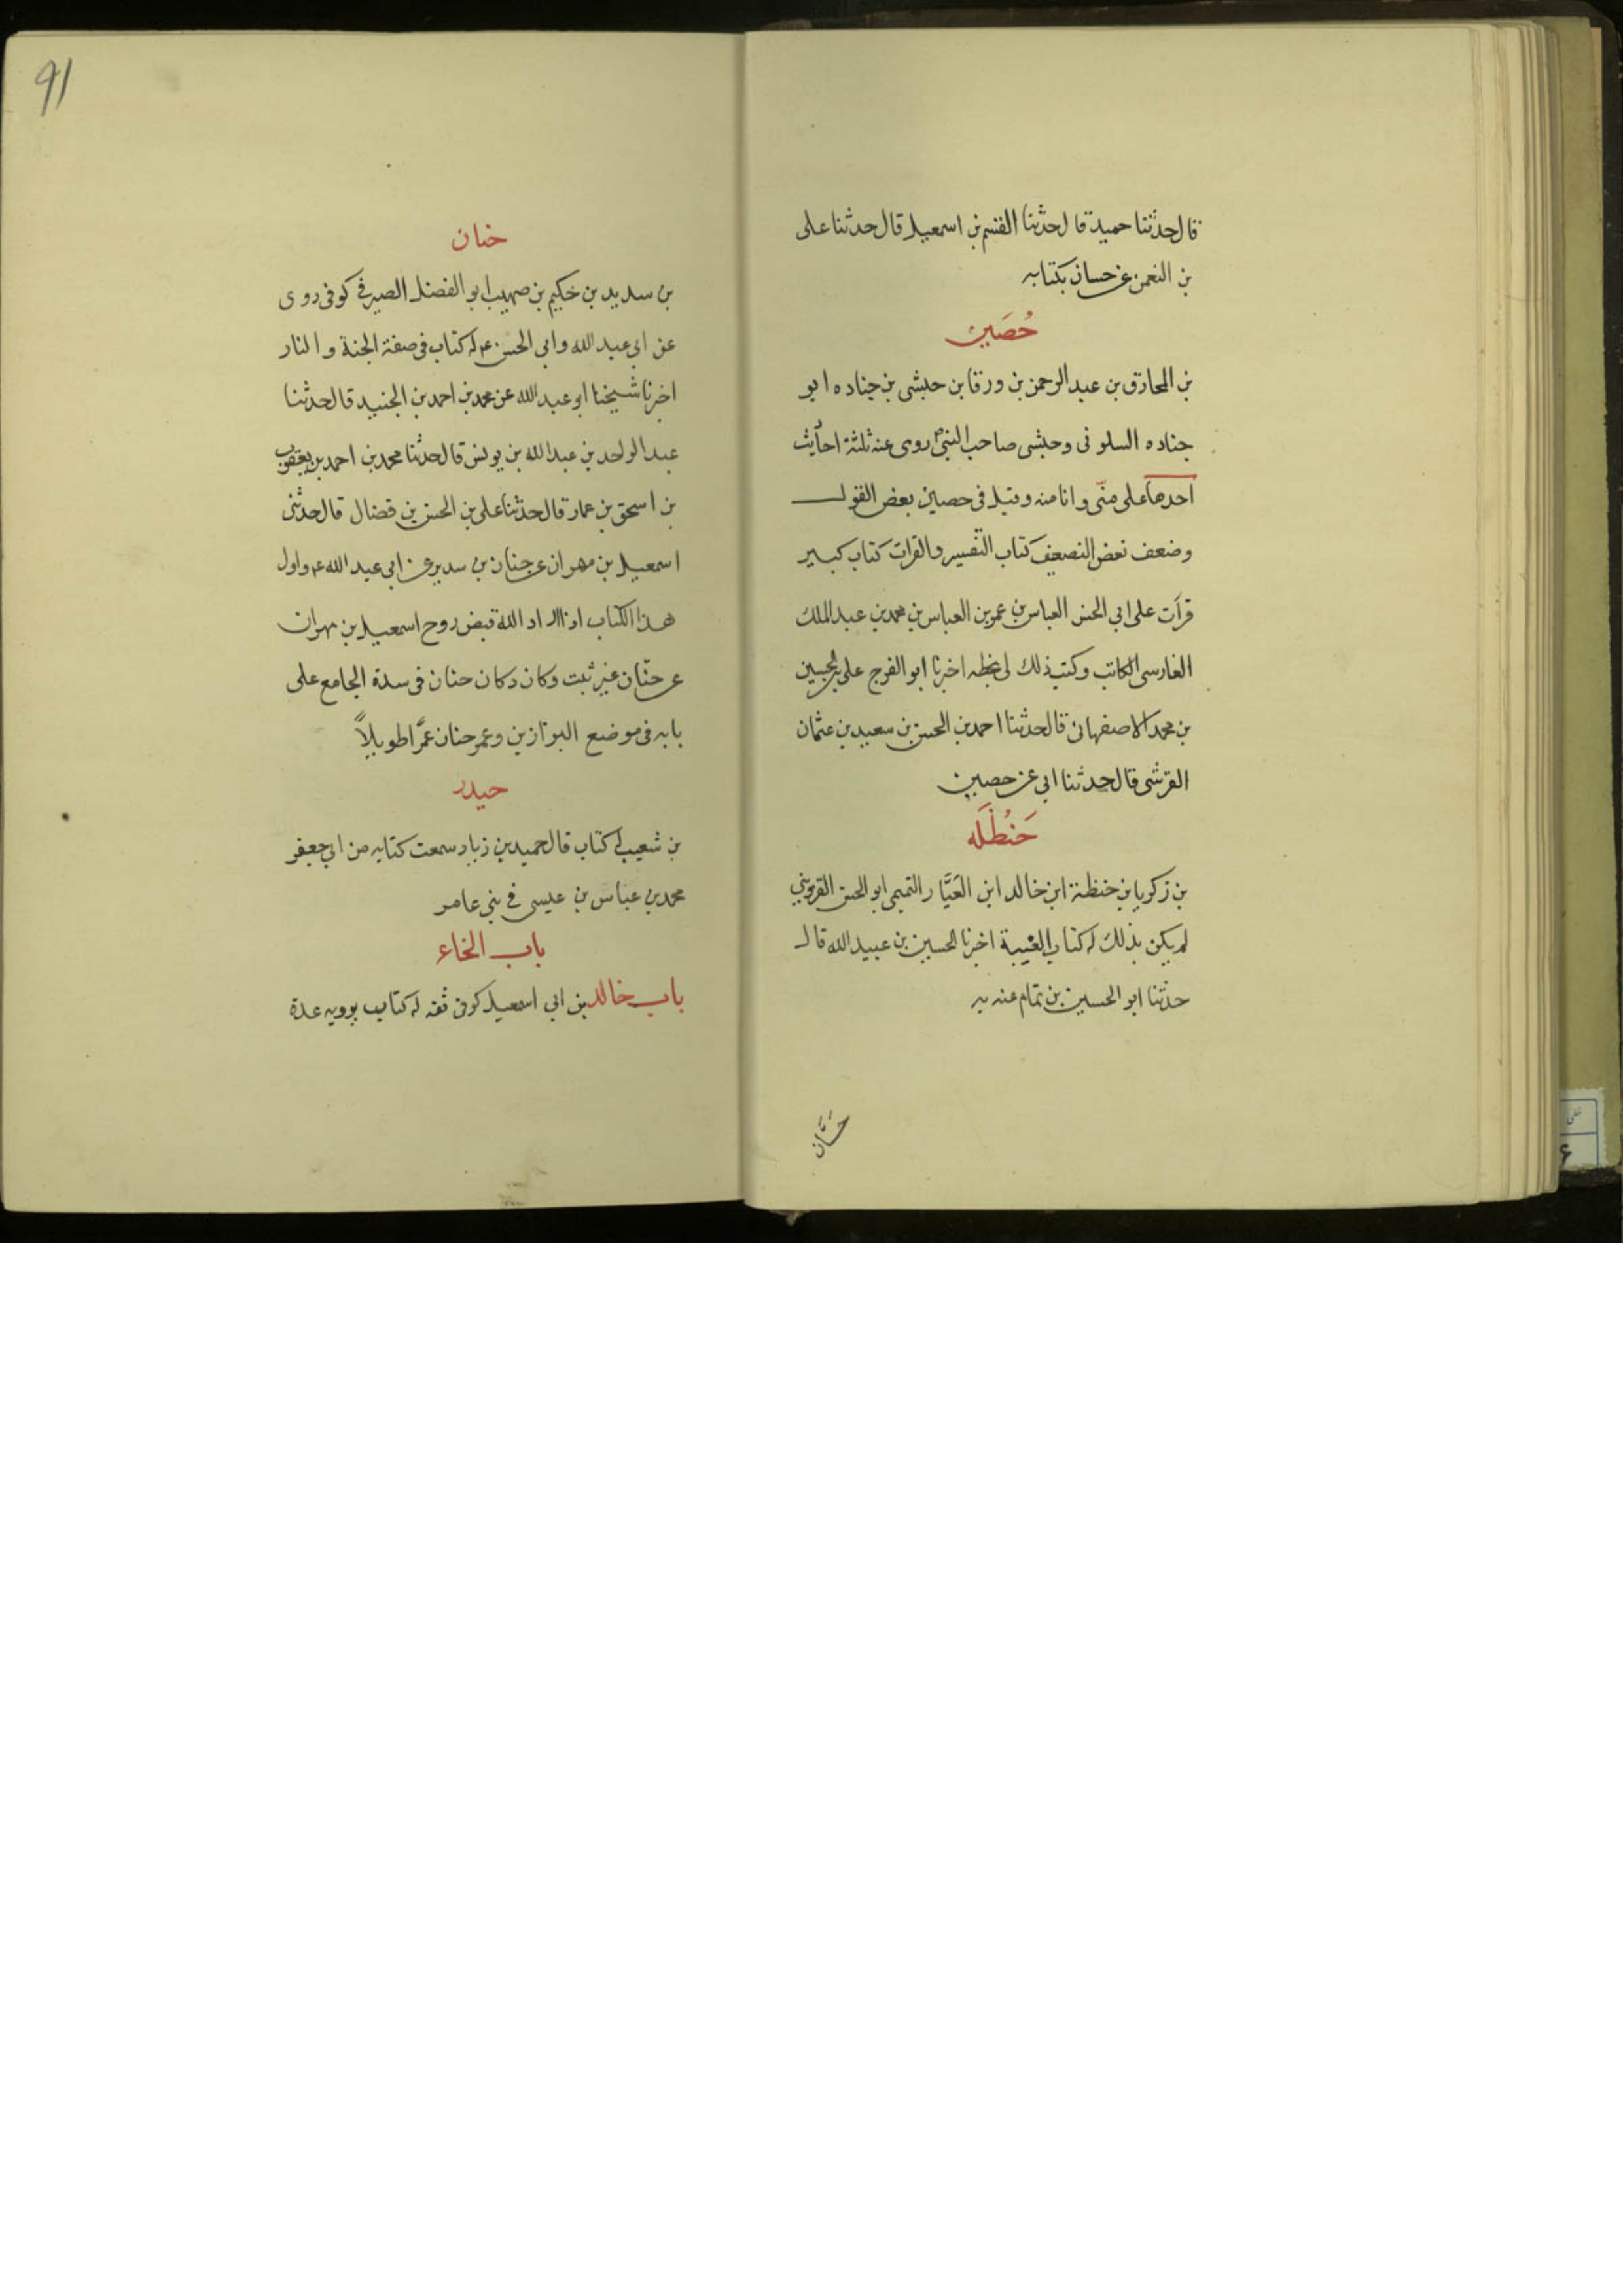 قال حدثنا حميد قال حدثنا القسم بن اسمعيل قال حدثنا على
بن النعمن عن حسان بكتابه
حُصَين
بن المخارق بن عبد الرحمن بن ورقا بن حبشى بن جناده ابو
جناده السلونى وحبشى صاحب النبى ص روى عنه ثلثة احاديث
احدها على منّى وانا منه وقيل فى حصين بعض القول
وضعف بعض التضعيف كتاب التفسير والقرات كتاب كبير
قرأت على ابى الحسن العباس بن عمر بن العباس بن محمد بن عبد الملك
الفارسى الكاتب وكتب ذلك لى بخطه اخبرنا ابو الفرج على بن الحسين
بن محمد الاصفهانى قال حدثنا احمد بن الحسن بن سعيد بن عثمان
القرشى قال حدثنا ابى عن حصين
حَنُظَله
بن زكريا بن حنظة ابن خالد ابن العَيَّار التميمى ابو الحسن القزوينى
لم يكن بذلك له كتاب الغيبة اخبرنا الحسين بن عبيد الله قال
حدثنا ابو الحسين بن تمام عنه به
حَنَّان
91
خنان
بن سديد بن حكيم بن صهيب ابو الفضل الصيرفى كوفى روى
عن ابى عبد الله وابى الحسن ع له كتاب فى صفة الجنة والنار
اخبرنا شيخنا ابو عبد الله عن محمد بن احمد بن الجنيد قال حدثنا
عبد الواحد بن عبد الله بن يونس قال حدثنا محمد بن احمد بن يعقوب
بن اسحق بن عمار قال حدثنا على بن الحسن بن فضال قال حدثنى
اسمعيل بن مهران عن حنان بن سدير عن ابى عبد الله ع واول
هذا الكتاب اذا اراد الله قبض روح اسمعيل بن مهران
عن حنّان غير ثبت وكان دكان حنان فى سدة الجامع على
بابه فى موضع البزازين وعمر حنان عمرًا طويلاً
حيدر
بن شعيب له كتاب قال حميد بن زياد سمعت كتابه من ابى جعفر
محمد بن عباس بن عيسى فى بنى عامر
باب الخاء
باب خالد بن ابى اسمعيل كوفى ثقه له كتاب يرويه عدة